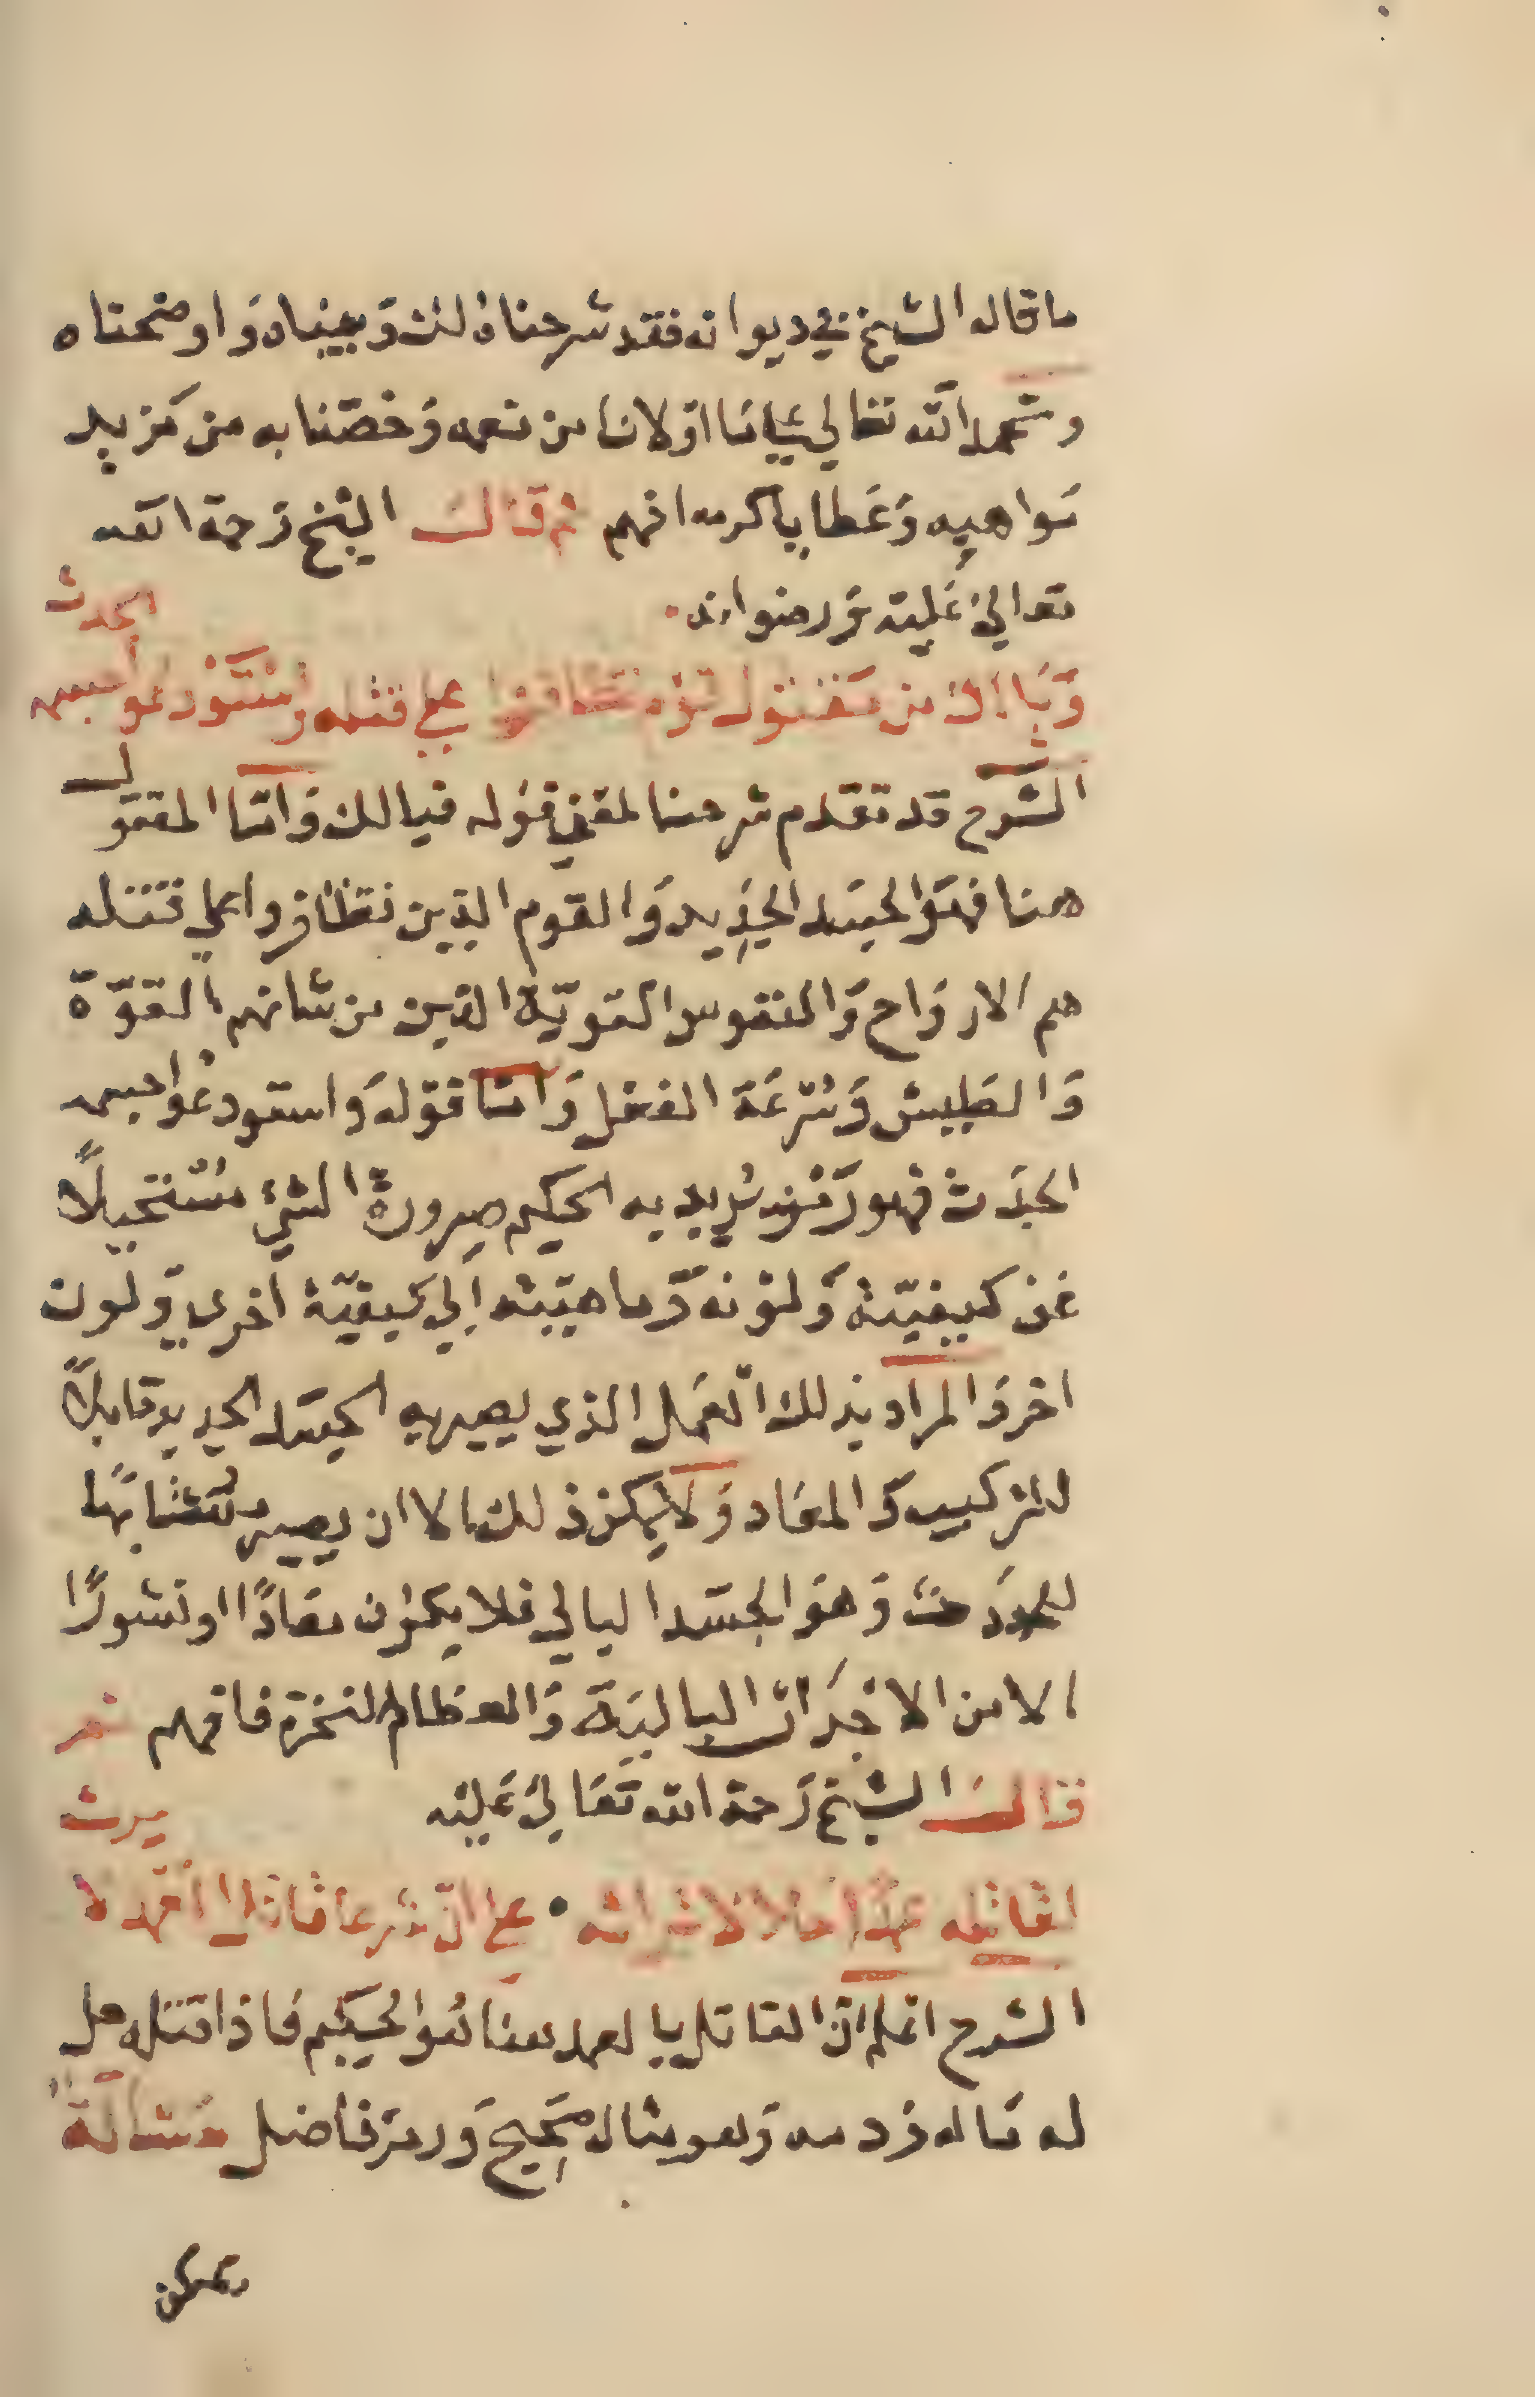 ما قاله الشيخ في ديوانه فقد شرحنا ذلك وَبيناه وَاوضحناه
ونحمد الله تعالي علي ما اوْلانا من نعمه وَخصّنا به من مَزيد
مَواهبه وَعَطايا كرمه افهم ثم قال الشيخ رَحمة الله
تعالي عَليه وَرضوانه
وَيَا لك من مَقتول قوْم تظافروا علي قتله وَاسْتَوْدعوا جسمه الجدث
الشرح قد تقدم شرحنا لمعني قوْله فيا لك وَامّا المقتول
هنا فهوَ الجسَد الجَديد وَالقوم الذين تظافروا علي قتله
هم الارْوَاح وَالنفوس القويّة الذين من شانهم القوّة
وَالطيش وَسُرْعَة الفعْل وَامّا قوْله وَاستودعوا جسمه
الجدَث فهو رَمْز يُريد به الحكيم صيرورة الشيْ مُسْتحيلاً
عَن كيفيّته وَلوْنه وَماهيّته اِلي كيفيّة اخري وَلون
اخر وَالمراد بذلك العَمل الذي يصير به الجسَد الجديد قابلاً
للتركيب وَالمعَاد وَلا يمكن ذلك الا ان يصير مُتشابهًا
للجدَث وَهوَ الجسَد البالي فلا يكون معَادًا او نشورًا
الا من الاجْدَاث الباليَة وَالعظام النخرَة فافهم ثم
قال الشيخ رَحمة الله تعَالي عَليْه
لقاتله عمْدًا حلالا تراثه علي انّ شرعا قاتل العمد لا يرث
الشرح اعْلم انّ القاتل بالعمد هنا هوَ الحكيم فاذا قتله حل
له مَاله وَدمه وَهو مثال صَحِيح وَرمز فاضل مَسْألة
يمكن